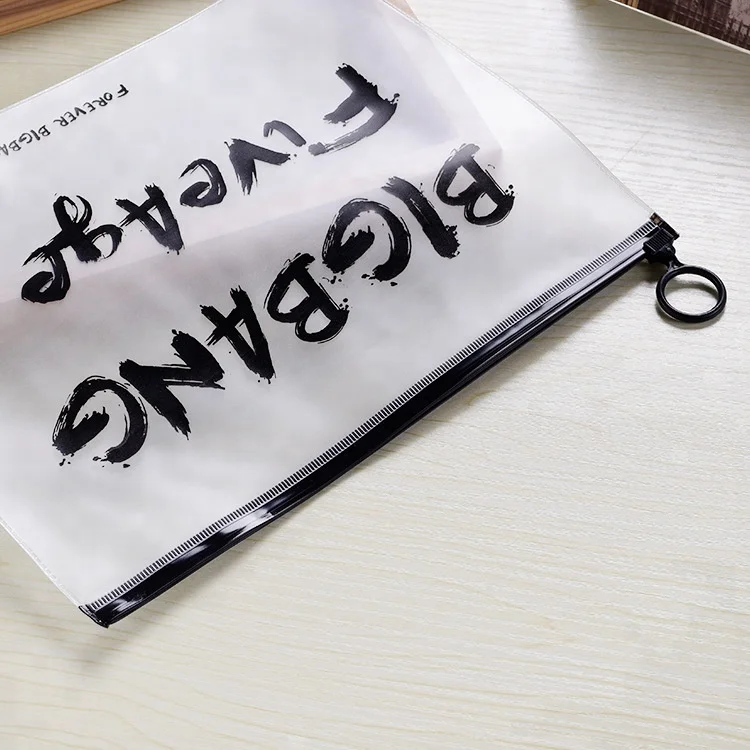 BIGBANG
FiveAge
FOREVER BIGBA